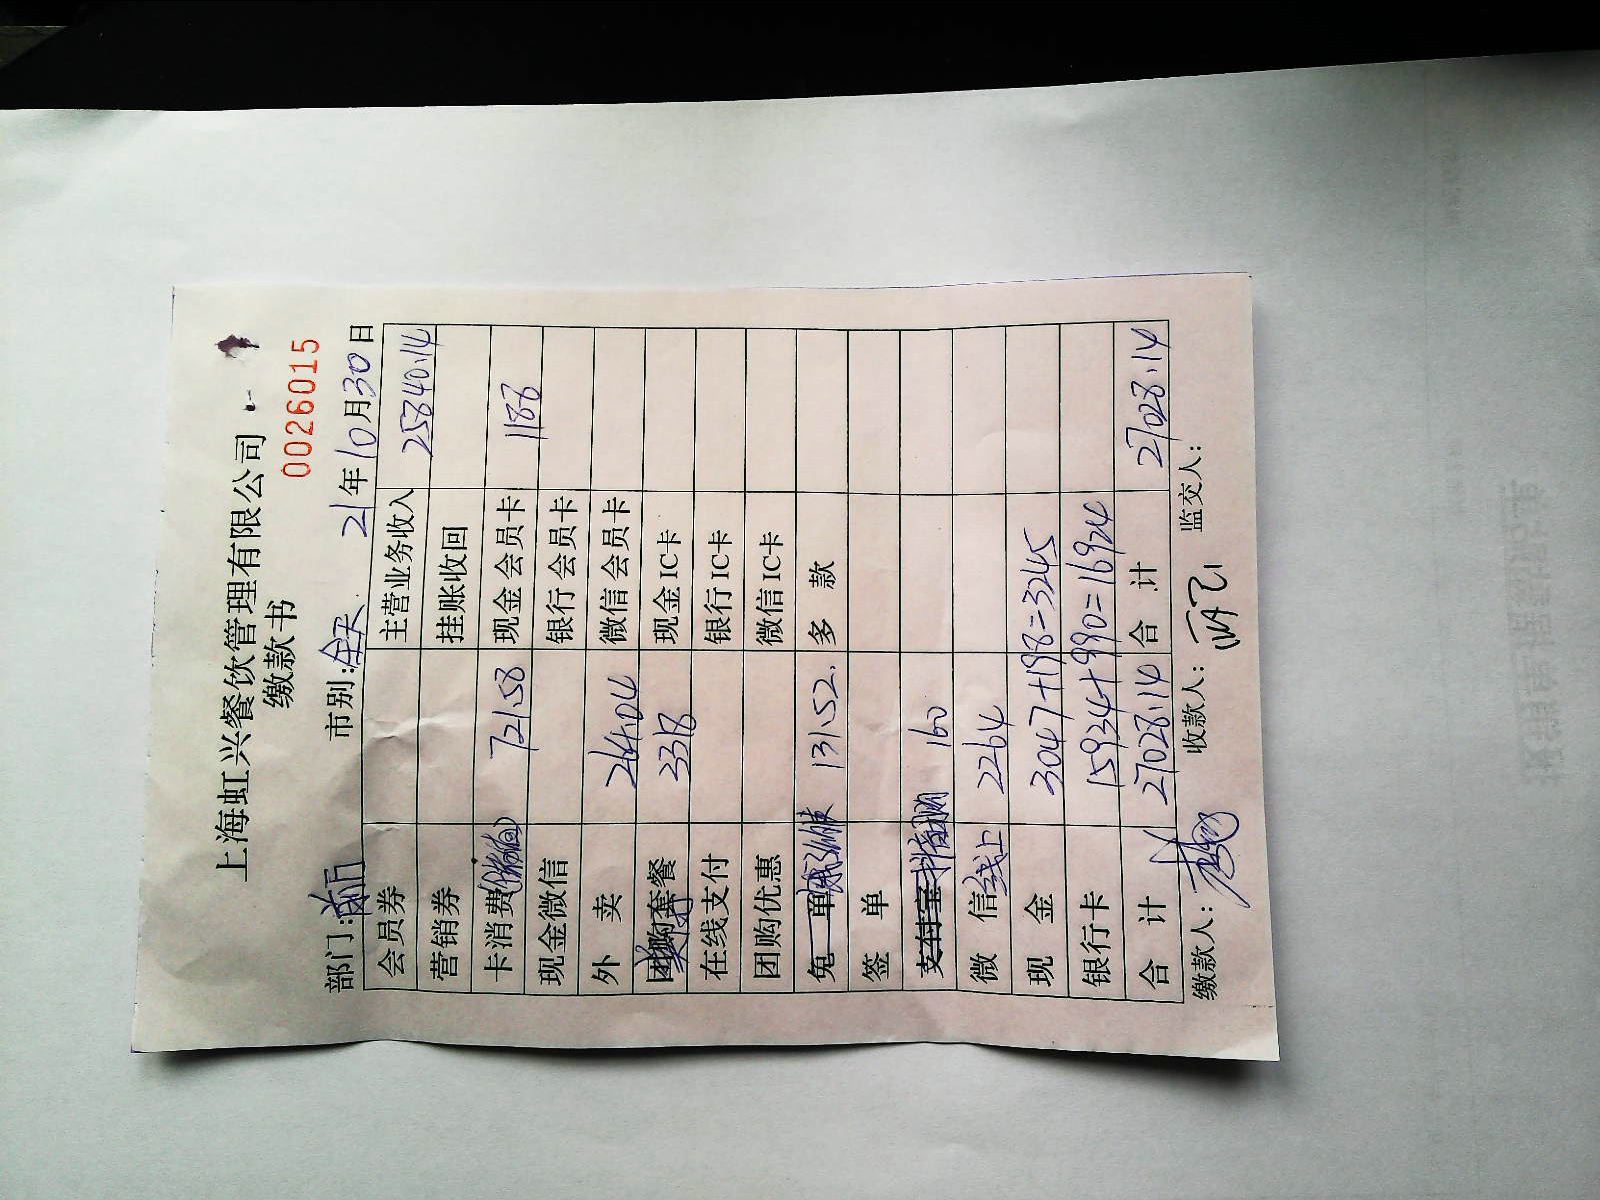 上海虹兴餐饮管理有限公司
缴款书
0026015
部门:前厅 市别:全天 21年10月30日
会员券 主营业务收入 25840.14
营销券 挂账收回
卡消费 721.58 现金会员卡 1188
现金微信 银行会员卡
外 卖 264.04 微信会员卡
团购套餐 3318 现金IC卡
在线支付 银行IC卡
团购优惠 微信IC卡
免 单 131.52 多 款
签 单
支付宝 160
微 信 线上 2264
现 金 3047+198=3245
银行卡 15934+990=16924
合 计 27028.14 合 计 27028.14
缴款人: 收款人: 监交人: